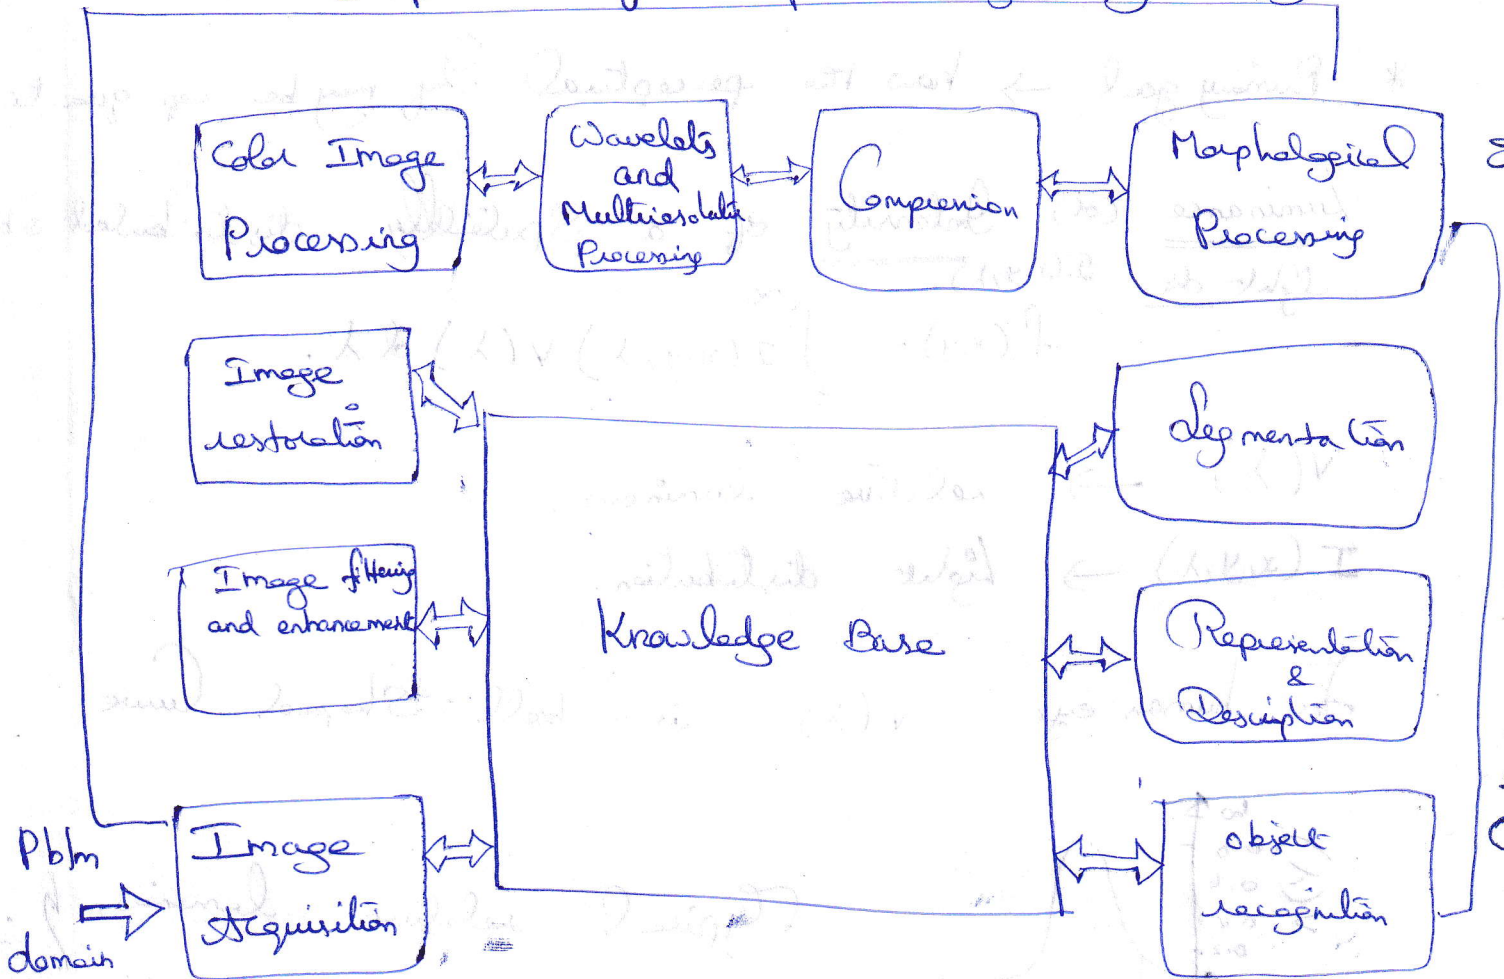 Color Image
Processing
Wavelets
and
Multiresolution
Processing
Compression
Morphological
Processing
Image
restoration
Segmentation
Image filtering
and enhancement
Knowledge Base
Representation
&
Description
Pblm
domain
Image
Acquisition
object
recognition